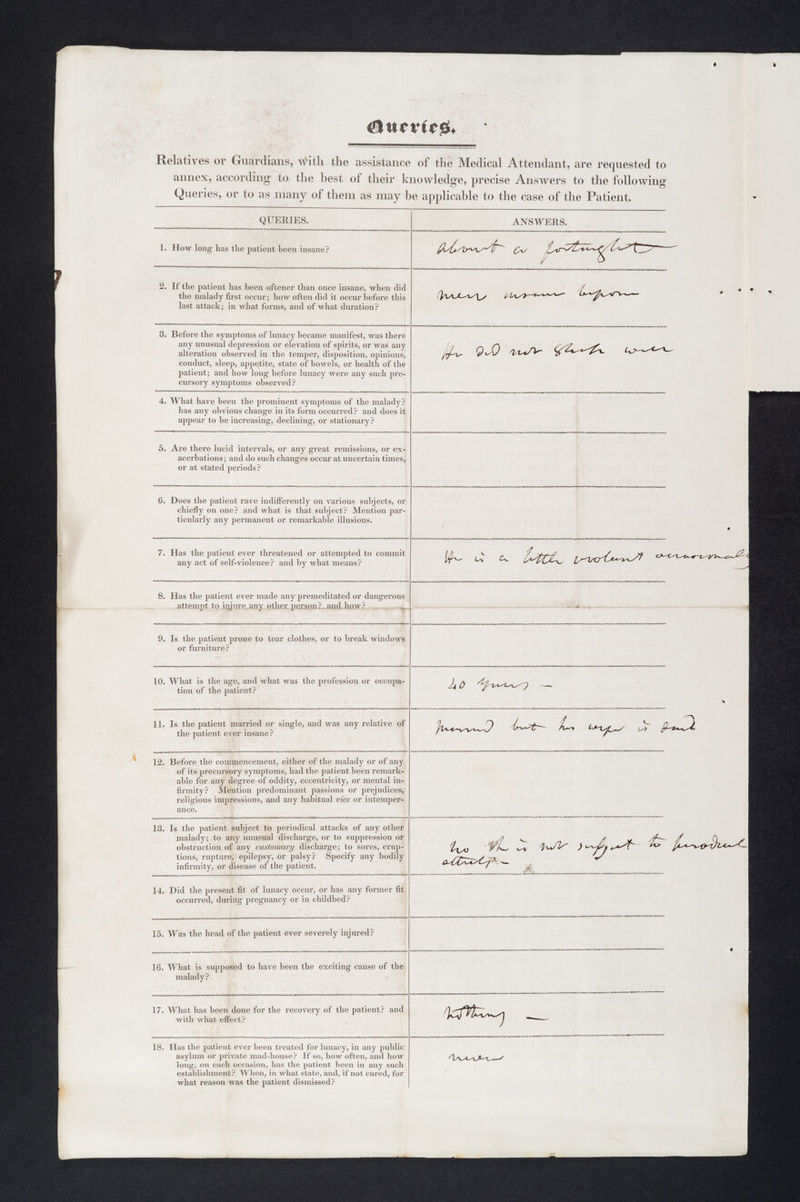 Queries.
Relatives or Guardians, with the assistance of the Medical Attendant, are requested to
annex, according to the best of their knowledge, precise Answers to the following
Queries, or to as many of them as may be applicable to the case of the Patient.
QUERIES.
ANSWERS.
1. How long has the patient been insane?
About a fortnight
2. If the patient has been oftener than once insane, when did
the malady first occur; how often did it occur before this
last attack; in what forms, and of what duration?
never insane before
3. Before the symptoms of lunacy became manifest, was there
any unusual depression or elevation of spirits, or was any
alteration observed in the temper, disposition, opinions,
conduct, sleep, appetite, state of bowels, or health of the
patient; and how long before lunacy were any such pre-
cursory symptoms observed?
He did not sleep well
4. What have been the prominent symptoms of the malady?
has any obvious change in its form occurred? and does it
appear to be increasing, declining, or stationary?
5. Are there lucid intervals, or any great remissions, or ex-
acerbations; and do such changes occur at uncertain times,
or at stated periods?
6. Does the patient rave indifferently on various subjects, or
chiefly on one? and what is that subject? Mention par-
ticularly any permanent or remarkable illusions.
7. Has the patient ever threatened or attempted to commit
any act of self-violence? and by what means?
He is a little violent occasionally
8. Has the patient ever made any premeditated or dangerous
attempt to injure any other person? and how?
9. Is the patient prone to tear clothes, or to break windows
or furniture?
10. What is the age, and what was the profession or occupa-
tion of the patient?
40 years —
11. Is the patient married or single, and was any relative of
the patient ever insane?
Married but his wife is dead
12. Before the commencement, either of the malady or of any
of its precursory symptoms, had the patient been remark-
able for any degree of oddity, eccentricity, or mental in-
firmity? Mention predominant passions or prejudices,
religious impressions, and any habitual vice or intemper-
ance.
13. Is the patient subject to periodical attacks of any other
malady; to any unusual discharge, or to suppression or
obstruction of any customary discharge; to sores, erup-
tions, rupture, epilepsy, or palsy? Specify any bodily
infirmity, or disease of the patient.
No he is not subject to periodical
attacks —
14. Did the present fit of lunacy occur, or has any former fit
occurred, during pregnancy or in childbed?
15. Was the head of the patient ever severely injured?
16. What is supposed to have been the exciting cause of the
malady?
17. What has been done for the recovery of the patient? and
with what effect?
Nothing —
18. Has the patient ever been treated for lunacy, in any public
asylum or private mad-house? If so, how often, and how
long, on each occasion, has the patient been in any such
establishment? When, in what state, and, if not cured, for
what reason was the patient dismissed?
never